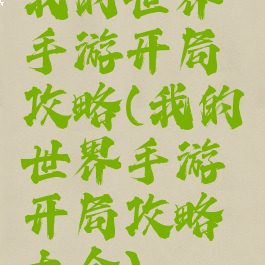 我的世界
手游开局
攻略(我的
世界手游
开局攻略
大全)